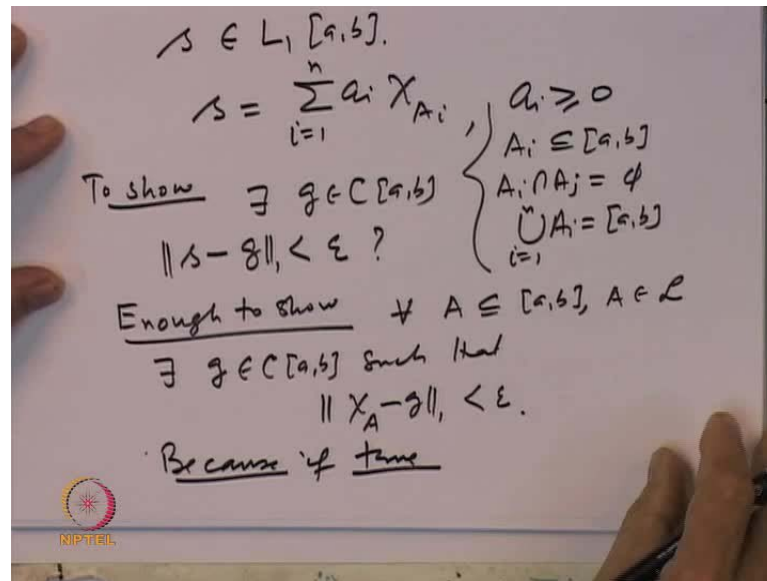 s ∈ L₁ [a,b].
s = ∑ᵢ₌₁ⁿ aᵢ χ_Aᵢ , aᵢ ≥ 0
Aᵢ ⊆ [a,b]
Aᵢ ∩ Aⱼ = ϕ
⋃ᵢ₌₁ⁿ Aᵢ = [a,b]
To show ∃ g ∈ C [a,b]
‖s − g‖₁ < ε ?
Enough to show ∀ A ⊆ [a,b], A ∈ ℒ
∃ g ∈ C [a,b] such that
‖χ_A − g‖₁ < ε.
Because if true
NPTEL